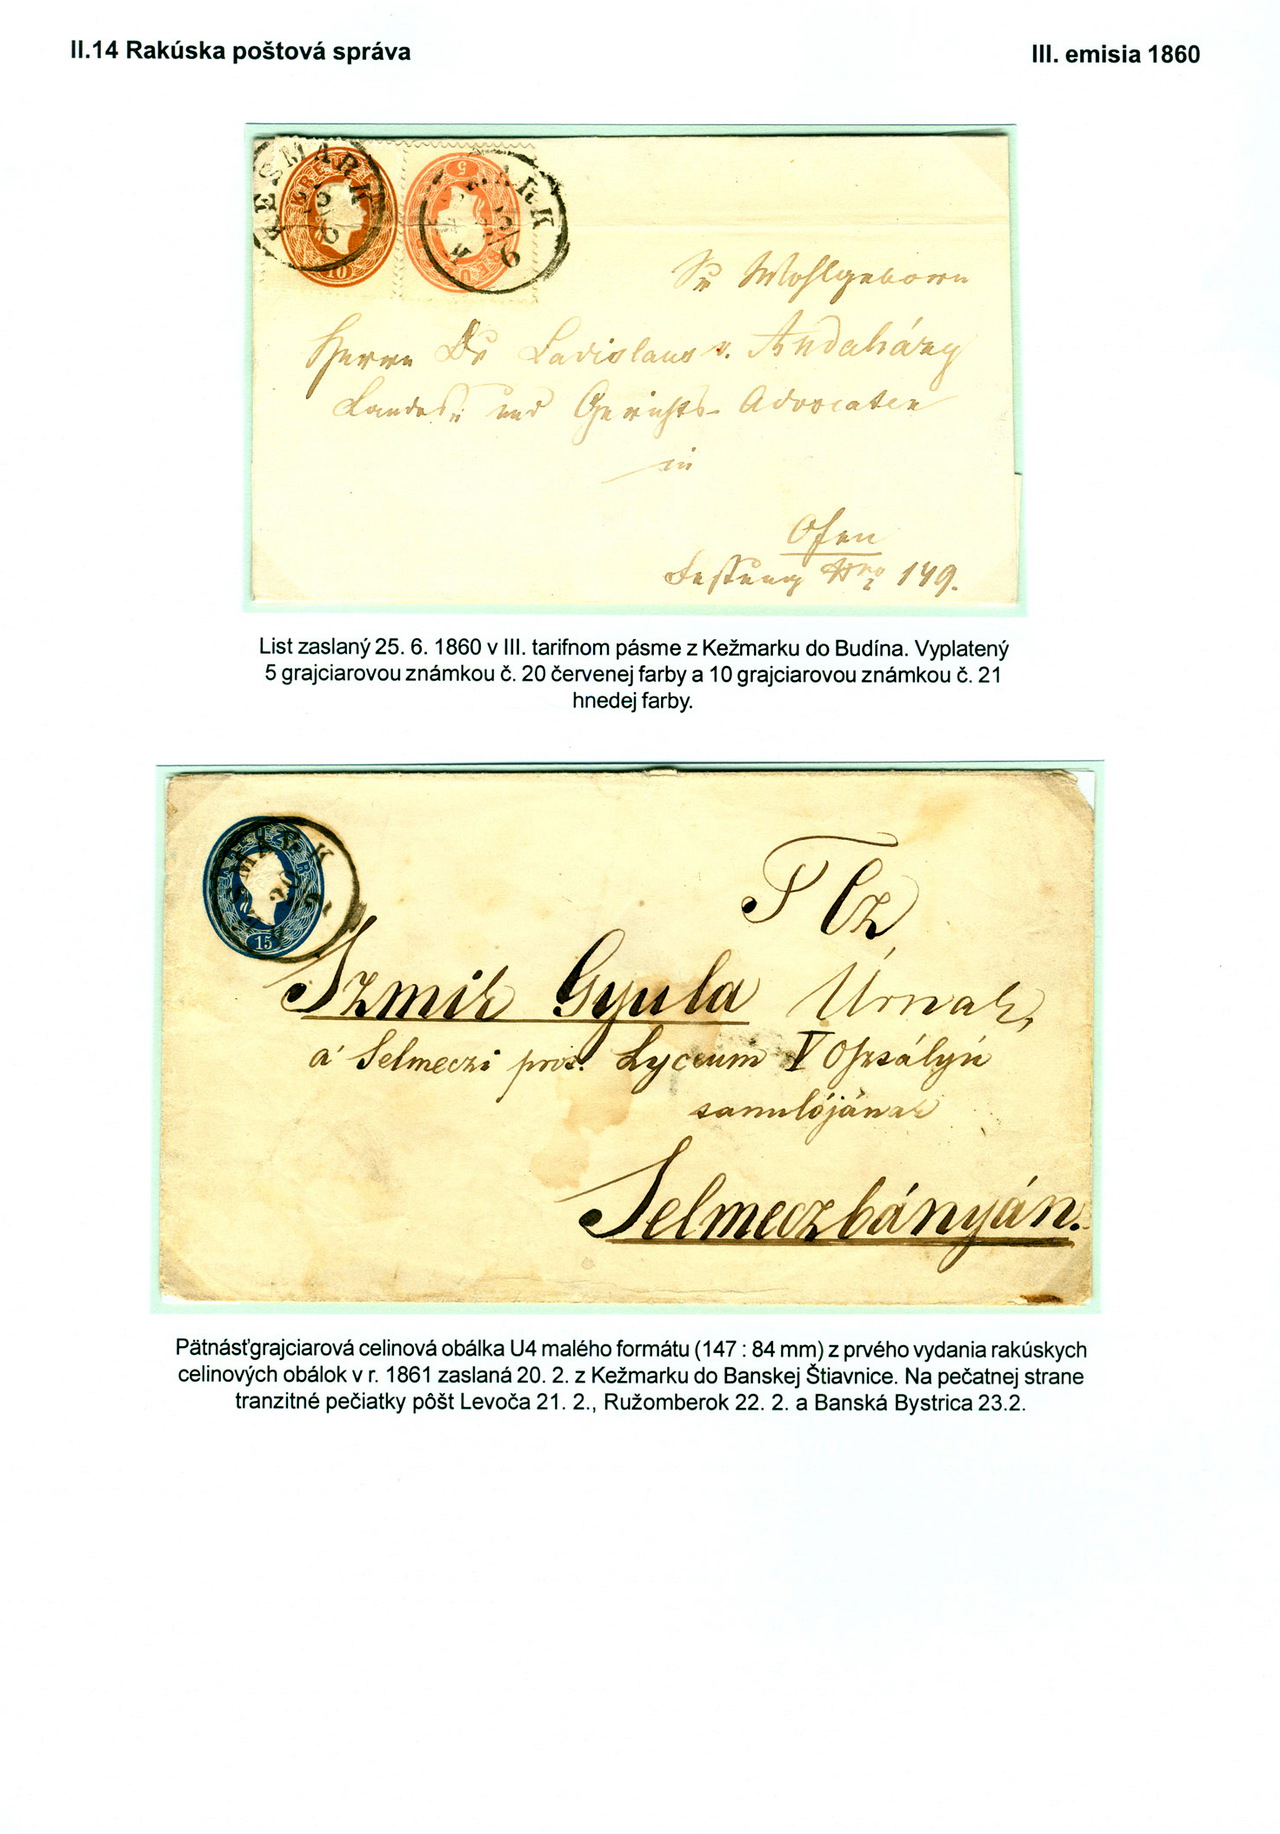 II.14 Rakúska poštová správa
III. emisia 1860
KESMARK
10
5
KESMARK
Sr Wohlgeborn
Herrn Dr Ladislaus v. Andaházy
Landes- und Gerichts- Advocaten
in
Ofen
Festung Nro 149.
List zaslaný 25. 6. 1860 v III. tarifnom pásme z Kežmarku do Budína. Vyplatený
5 grajciarovou známkou č. 20 červenej farby a 10 grajciarovou známkou č. 21
hnedej farby.
KESMARK
20
15
Szmik Gyula Úrnak,
á Selmeczi pros. Lyceum V Oszályú
tanulójának
Selmeczbányán.
Pätnásťgrajciarová celinová obálka U4 malého formátu (147 : 84 mm) z prvého vydania rakúskych
celinových obálok v r. 1861 zaslaná 20. 2. z Kežmarku do Banskej Štiavnice. Na pečatnej strane
tranzitné pečiatky pôšt Levoča 21. 2., Ružomberok 22. 2. a Banská Bystrica 23.2.